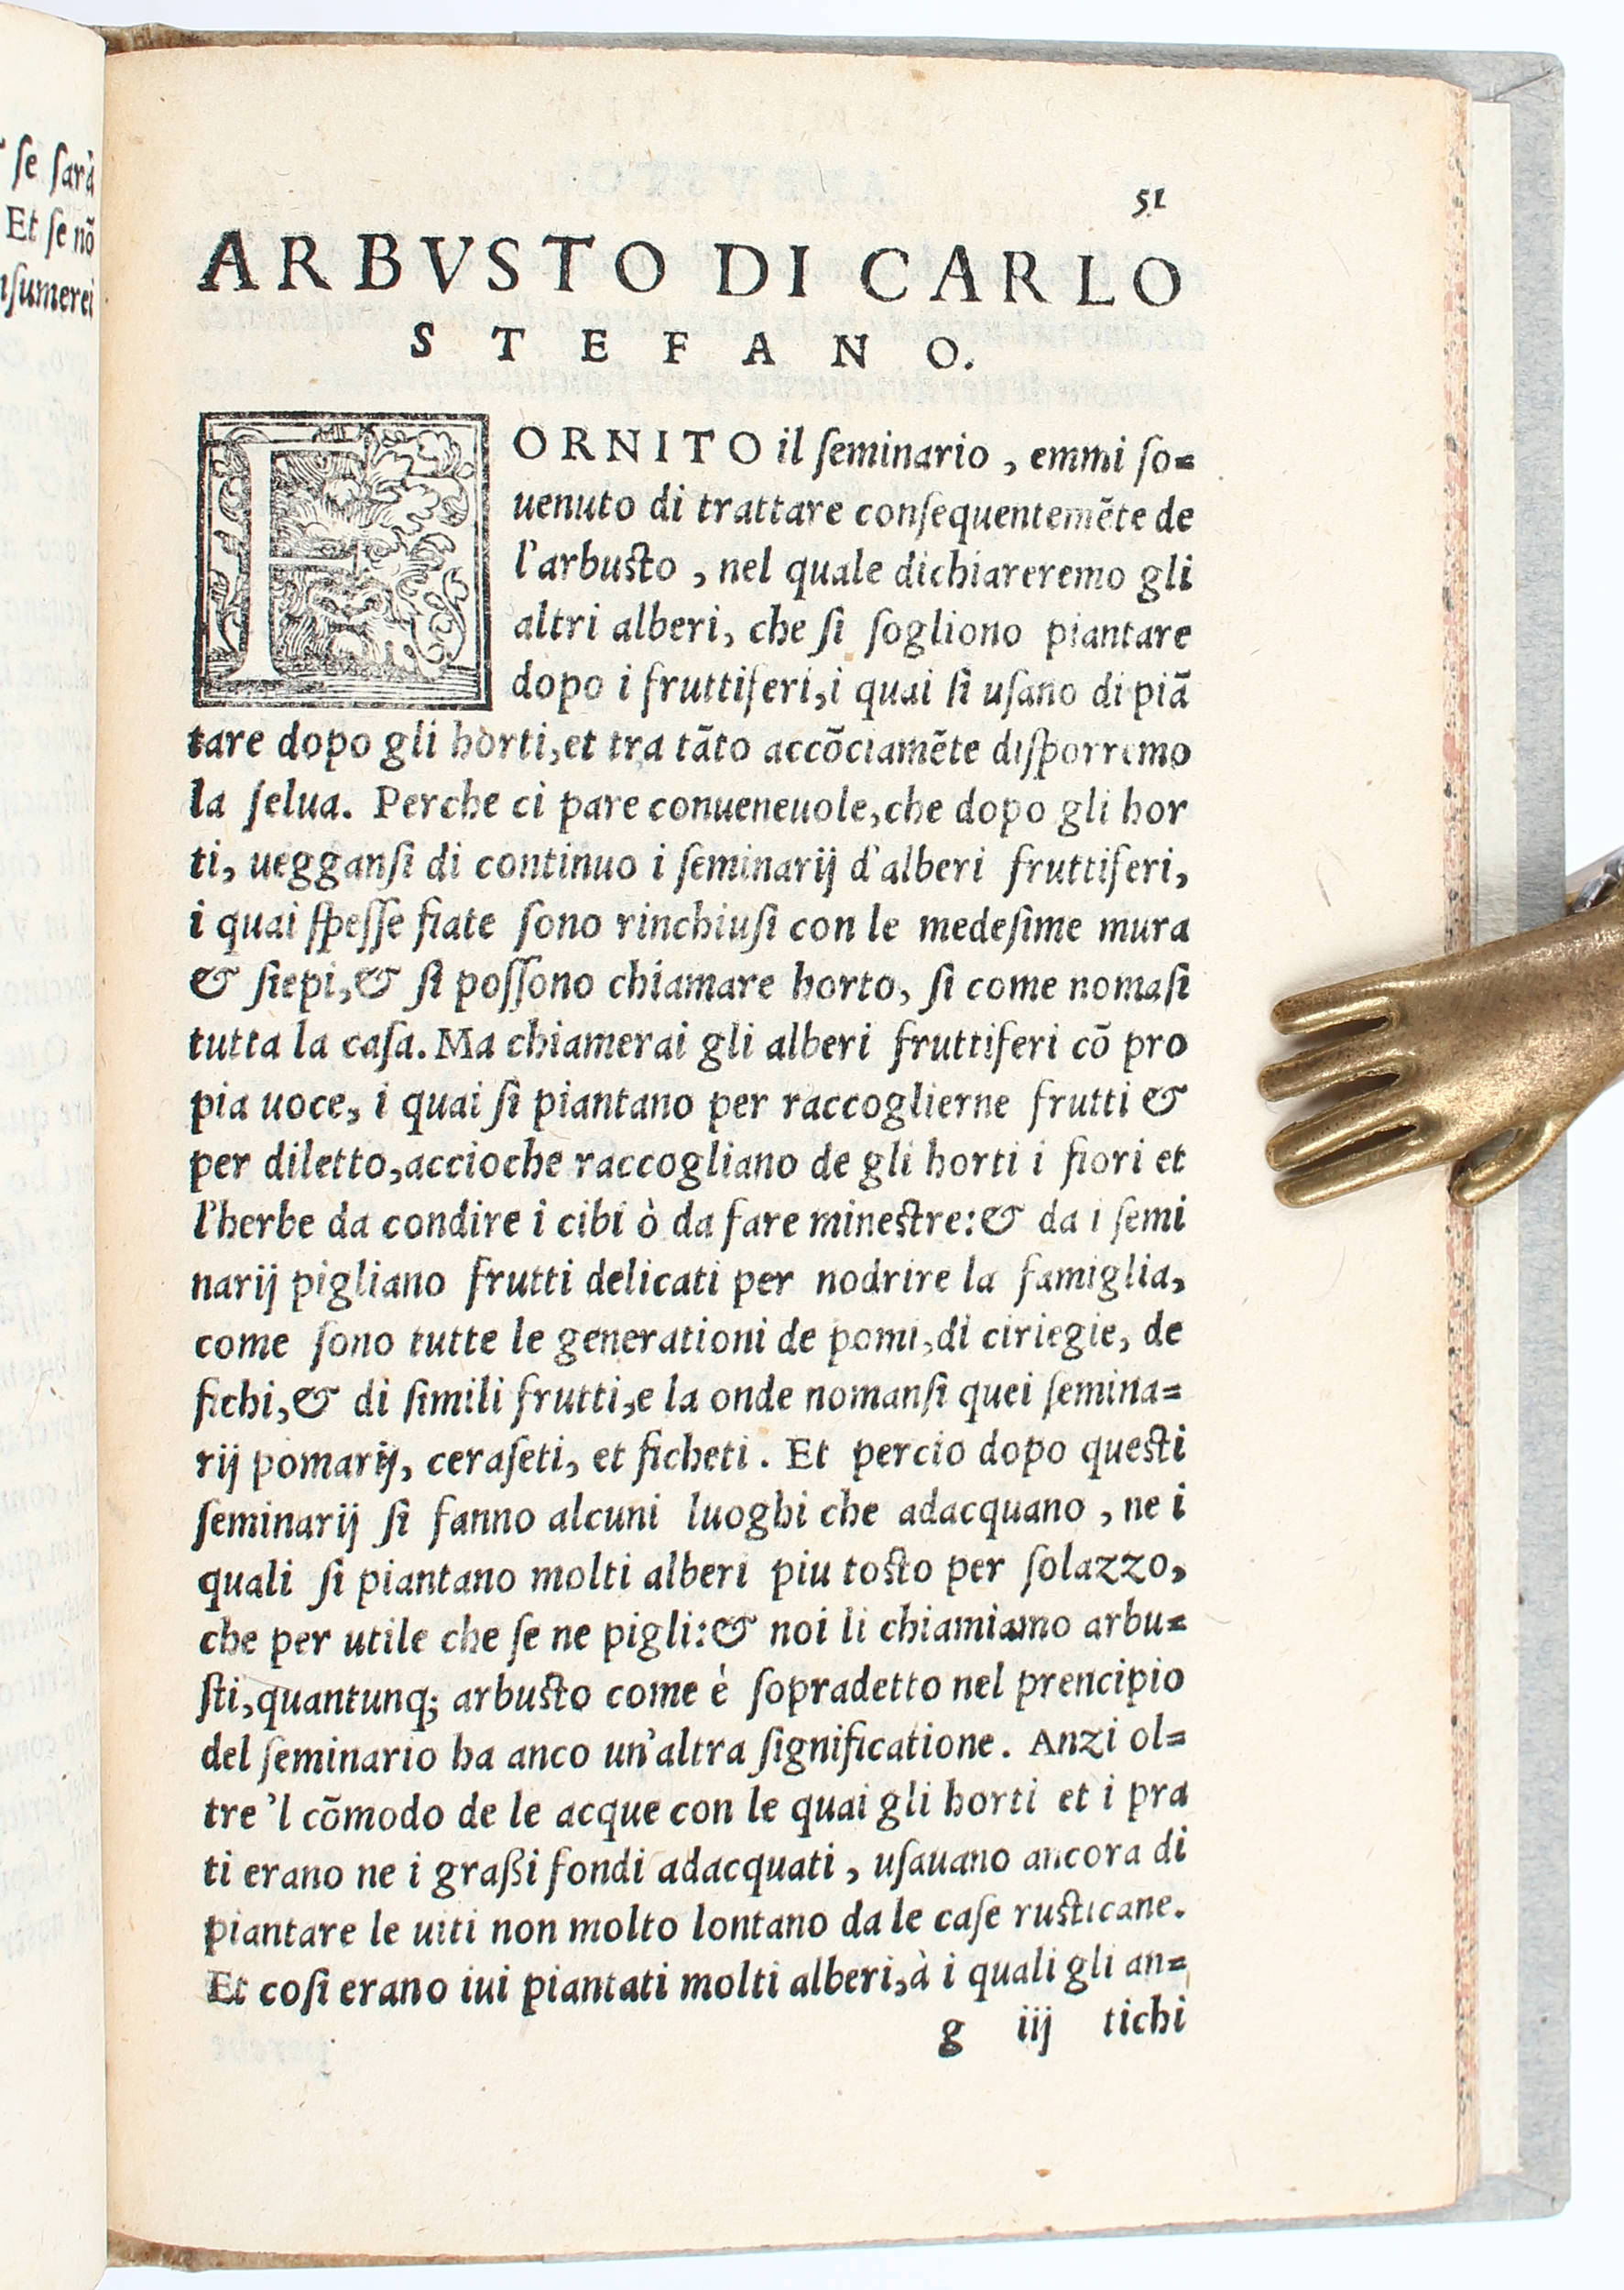 ſe ſarà
Et ſe nõ
ſumerei
51
ARBVSTO DI CARLO
STEFANO.
FORNITO il ſeminario, emmi ſo=
uenuto di trattare conſequentemẽte de
l'arbusto, nel quale dichiareremo gli
altri alberi, che ſi ſogliono piantare
dopo i fruttiferi, i quai ſi uſano di piã
tare dopo gli horti, et tra tãto accõciamẽte diſporremo
la ſelua. Perche ci pare conueneuole, che dopo gli hor
ti, uegganſi di continuo i ſeminarij d'alberi fruttiferi,
i quai ſpeſſe fiate ſono rinchiuſi con le medeſime mura
& ſiepi, & ſi poſſono chiamare horto, ſi come nomaſi
tutta la caſa. Ma chiamerai gli alberi fruttiferi cõ pro
pia uoce, i quai ſi piantano per raccoglierne frutti &
per diletto, accioche raccogliano de gli horti i fiori et
l'herbe da condire i cibi ò da fare minestre: & da i ſemi
narij pigliano frutti delicati per nodrire la famiglia,
come ſono tutte le generationi de pomi, di ciriegie, de
fichi, & di ſimili frutti, e la onde nomanſi quei ſemina=
rij pomarij, ceraſeti, et ficheti. Et percio dopo questi
ſeminarij ſi fanno alcuni luoghi che adacquano, ne i
quali ſi piantano molti alberi piu tosto per ſolazzo,
che per utile che ſe ne pigli: & noi li chiamiamo arbu=
ſti, quantunq; arbusto come è ſopradetto nel prencipio
del ſeminario ha anco un'altra ſignificatione. Anzi ol=
tre 'l cõmodo de le acque con le quai gli horti et i pra
ti erano ne i graßi fondi adacquati, uſauano ancora di
piantare le uiti non molto lontano da le caſe rusticane.
Et coſi erano iui piantati molti alberi, à i quali gli an=
g iij tichi